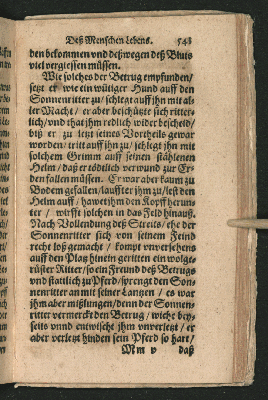 Deß Menschen Lebens. 543
den bekommen vnd deßwegen deß Bluts
viel vergiessen müssen.
Wie solches der Betrug empfunden/
setzt er wie ein wütiger Hund auff den
Sonnenritter zu/ schlegt auff jhn mit al-
ler Macht/ er aber beschützte sich ritter-
lich/ vnd that jhm redlich wider bescheid/
biß er zu letzt seines Vortheils gewar
worden/ tritt auff jhn zu/ schlegt jhn mit
solchem Grimm auff seinen stählenen
Helm/ daß er tödtlich verwund zur Er-
den fallen müssen. Er war aber kaum zu
Bodem gefallen/ laufft er jhm zu/ löst den
Helm auff/ hawet jhm den Kopff herun-
ter/ wirfft solchen in das Feld hinauß.
Nach Vollendung deß Streits/ ehe der
Sonnenritter sich von seinem Feind
recht loß gemacht/ kompt vnversehens
auff den Platz hinein geritten ein wolge-
rüster Ritter/ so ein Freund deß Betrugs
vnd stattlich zu Pferd/ sprengt den Son-
nenritter an mit seiner Lantzen/ es war
jhm aber mißlungen/ denn der Sonnen-
ritter vermerckt den Betrug/ wiche bey-
seits vnnd entwischt jhm vnverletzt/ er
aber verletzt hinden sein Pferd so hart/
M m v daß